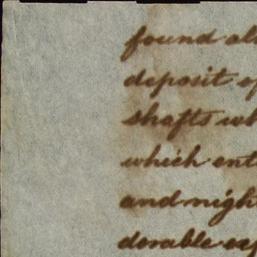 found al
deposit of
shafts wh
which ent
and nigh
derable ex